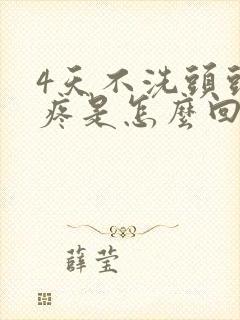 4天不洗頭頭
疼是怎麼回
薛莹